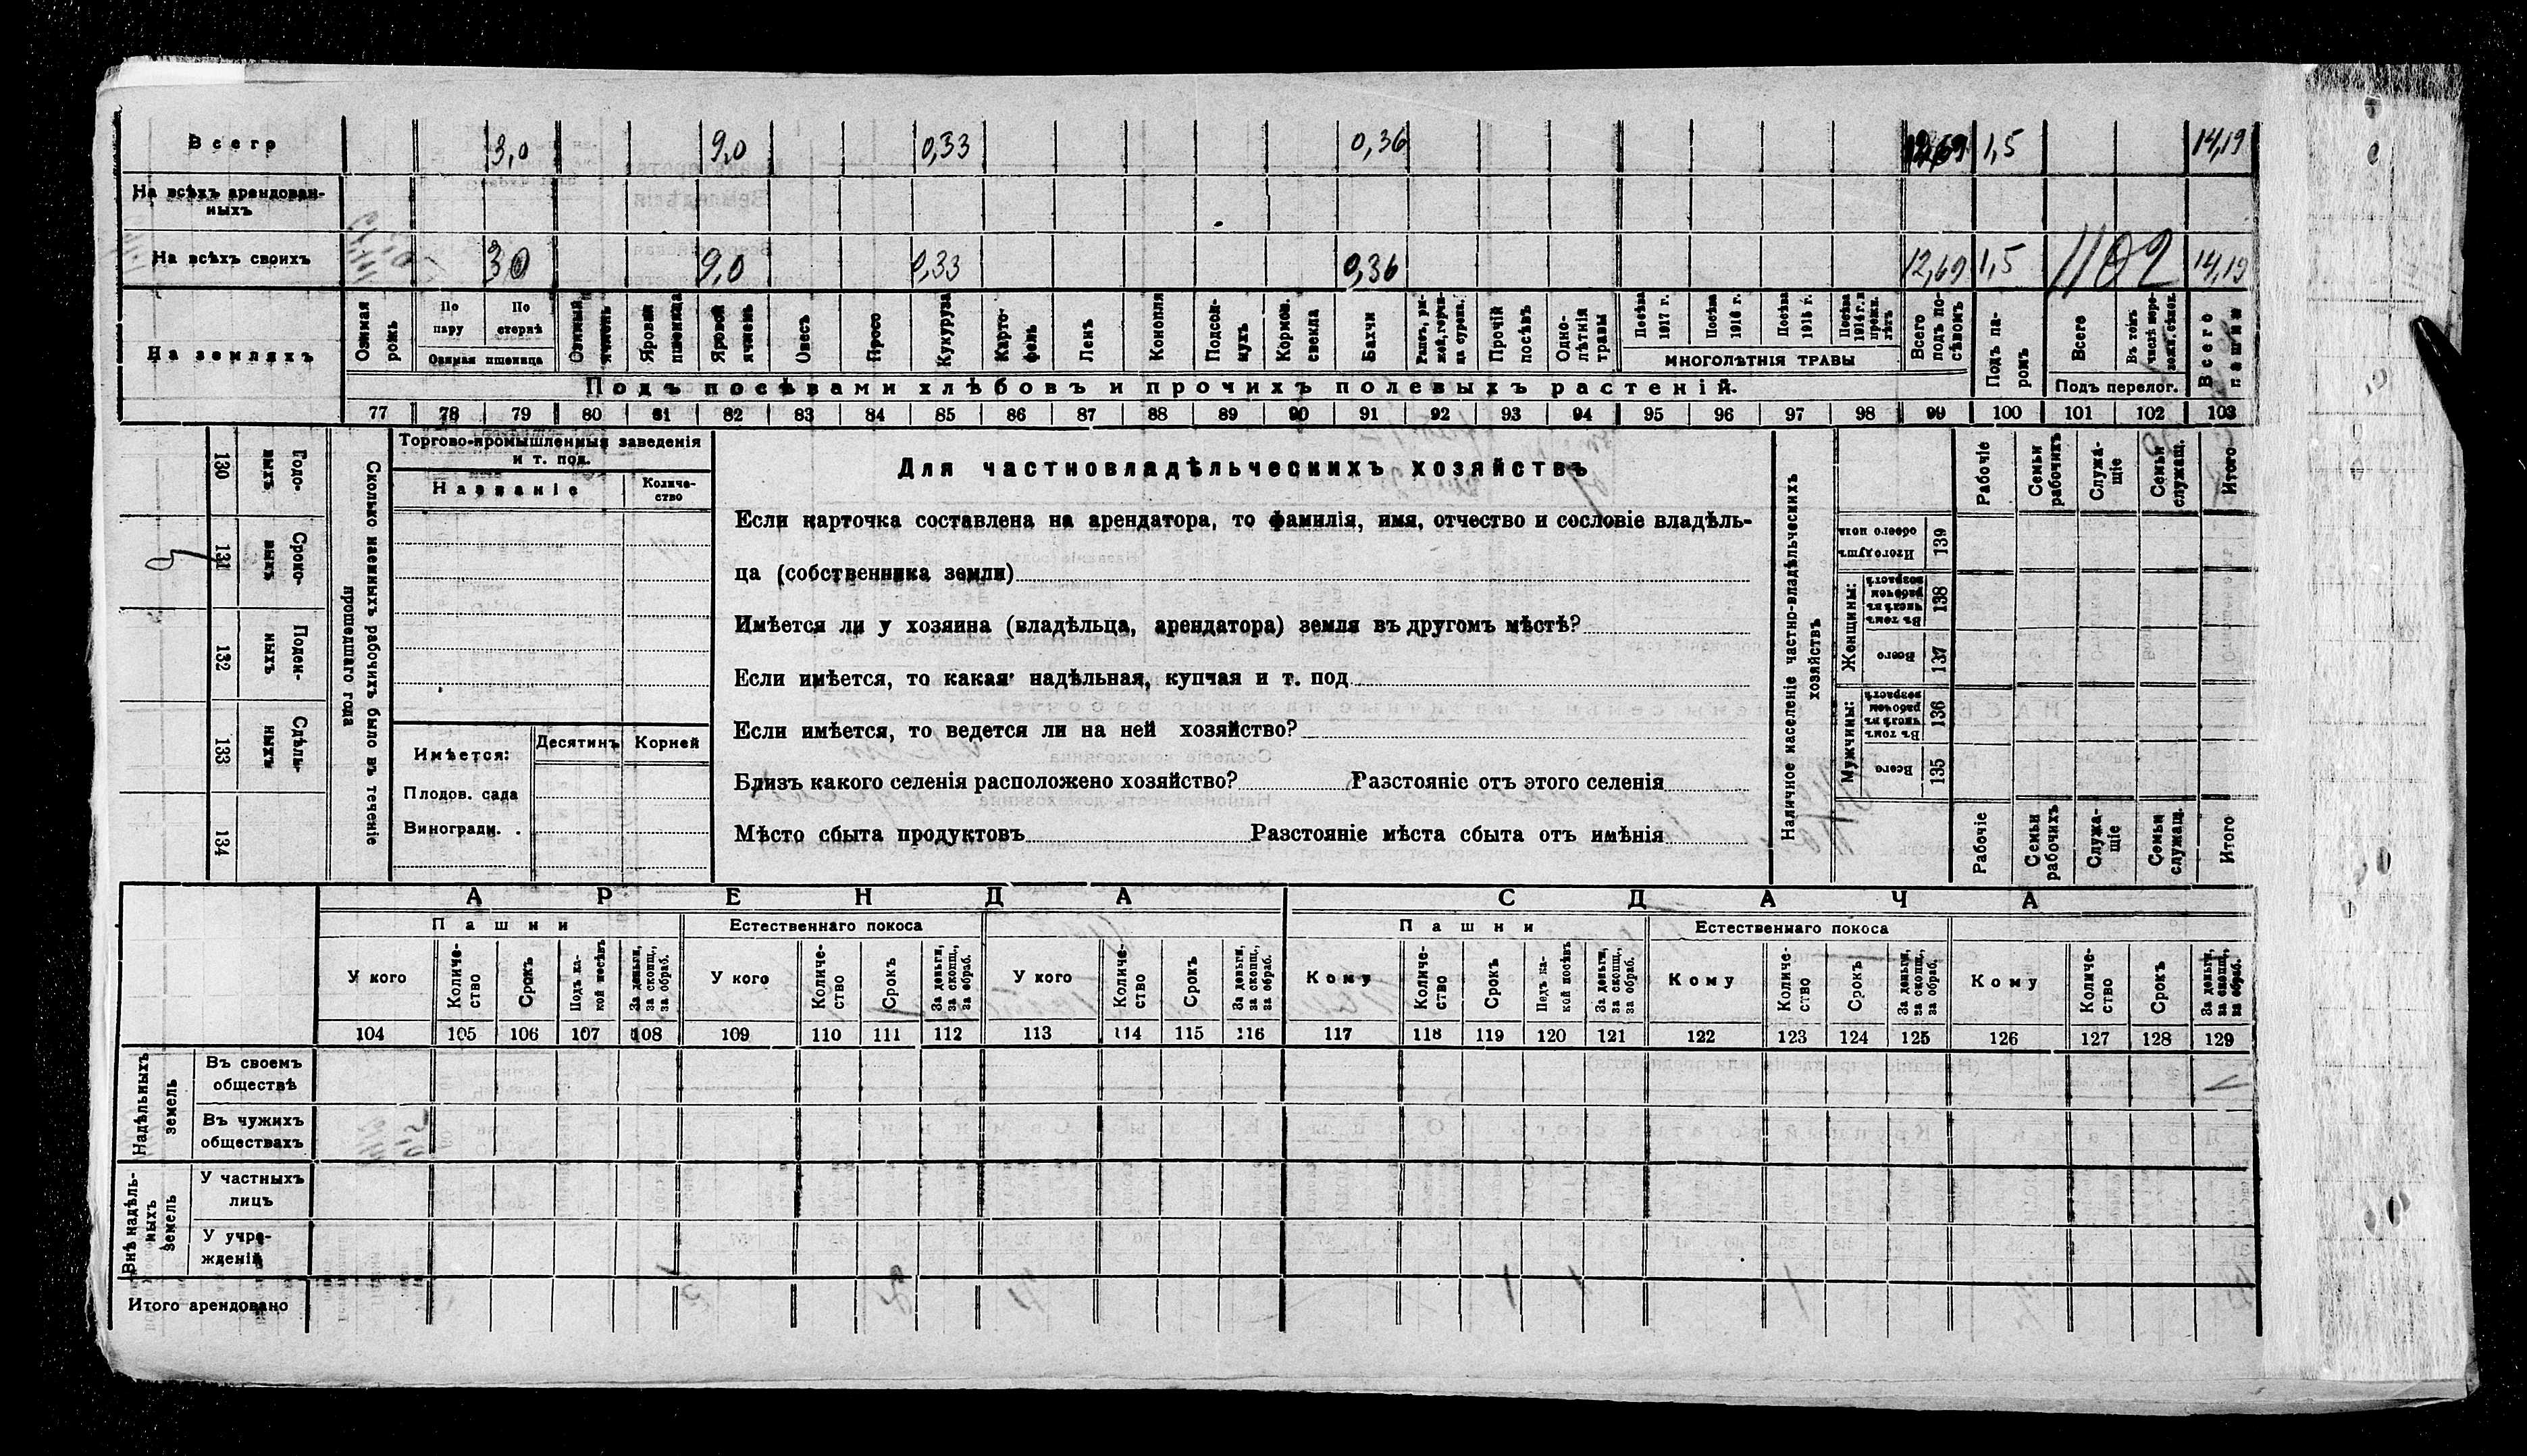 Всего 3,0 9,0 0,33 0,36 12,69 1,5 14,19
На всѣхъ арендован-
ныхъ
На всѣхъ своихъ 3 0 9,0 0,33 0,36 12,69 1,5 1102 14,19
На земляхъ
Озимая рожь
По пару
По стернѣ
Озимая пшеница
Озимый ячмень
Яровая пшеница
Яровой ячмень
Овесъ
Просо
Кукуруза
Карто-фель
Ленъ
Конопля
Подсол-нухъ
Кормов. свекла
Бахчи
Прочій посѣвъ
Одно-лѣтнія травы
Посѣва 1917 г.
Посѣва 1916 г.
Посѣва 1915 г.
Посѣва 1914 г. и прежн. лѣтъ
МНОГОЛѢТНІЯ ТРАВЫ
Всего подъ по-сѣвомъ
Подъ па-ромъ
Всего
Подъ перелог.
Всего пашни
Подъ посѣвами хлѣбовъ и прочихъ полевыхъ растеній.
77 78 79 80 81 82 83 84 85 86 87 88 89 90 91 92 93 94 95 96 97 98 99 100 101 102 103
130 Годо-выхъ
131 Сроко-выхъ
132 Поден-ныхъ
133 Сдѣль-ныхъ
134
Сколько наемныхъ рабочихъ было въ теченіе
прошедшаго года
Торгово-промышленныя заведенія
и т. под.
Названіе
Количе-
ство
Имѣется: Десятинъ Корней
Плодов. сада
Виноградн. .
Для частновладѣльческихъ хозяйствъ
Если карточка составлена на арендатора, то фамилія, имя, отчество и сословіе владѣль-
ца (собственника земли)
Имѣется ли у хозяина (владѣльца, арендатора) земля въ другомъ мѣстѣ?
Если имѣется, то какая надѣльная, купчая и т. под
Если имѣется, то ведется ли на ней хозяйство?
Близъ какого селенія расположено хозяйство? Разстояніе отъ этого селенія
Мѣсто сбыта продуктовъ Разстояніе мѣста сбыта отъ имѣнія
Наличное населеніе частно-владѣльческихъ
хозяйствъ
Рабочіе
Семьи рабочихъ
Служа-щіе
Семьи служащ.
Итого
Итого душъ обоего пола 139
Женщины:
Въ томъ числѣ въ рабочемъ возрастѣ 138
Всего 137
Мужчины:
Въ томъ числѣ въ рабочемъ возрастѣ 136
Всего 135
Рабочіе
Семьи рабочихъ
Служа-щіе
Семьи служащ.
Итого
АРЕНДА СДАЧА
Пашни Естественнаго покоса Пашни Естественнаго покоса
У кого
Количе-ство
Срокъ
Подъ ка-кой посѣвъ
За деньги, за скопщ., за обраб.
У кого
Количе-ство
Срокъ
За деньги, за скопщ., за обраб.
У кого
Количе-ство
Срокъ
За деньги, за скопщ., за обраб.
Кому
Количе-ство
Срокъ
Подъ ка-кой посѣвъ
За деньги, за скопщ., за обраб.
Кому
Количе-ство
Срокъ
За деньги, за скопщ., за обраб.
Кому
Количе-ство
Срокъ
За деньги, за скопщ., за обраб.
104 105 106 107 108 109 110 111 112 113 114 115 116 117 118 119 120 121 122 123 124 125 126 127 128 129
Надѣльныхъ земель
Въ своемъ
обществѣ
Въ чужихъ
обществахъ
Внѣ надѣль-ныхъ земель
У частныхъ
лицъ
У учре-
жденій
Итого арендовано